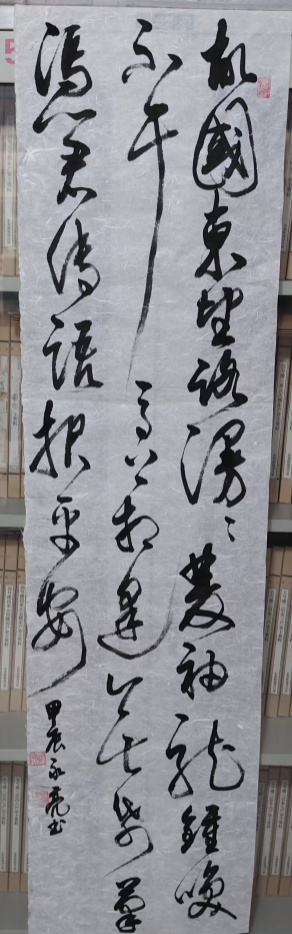 故國東望路漫〻雙袖龍鍾淚
不干馬上相逢無紙筆
憑君傳語報平安
甲辰永亮书